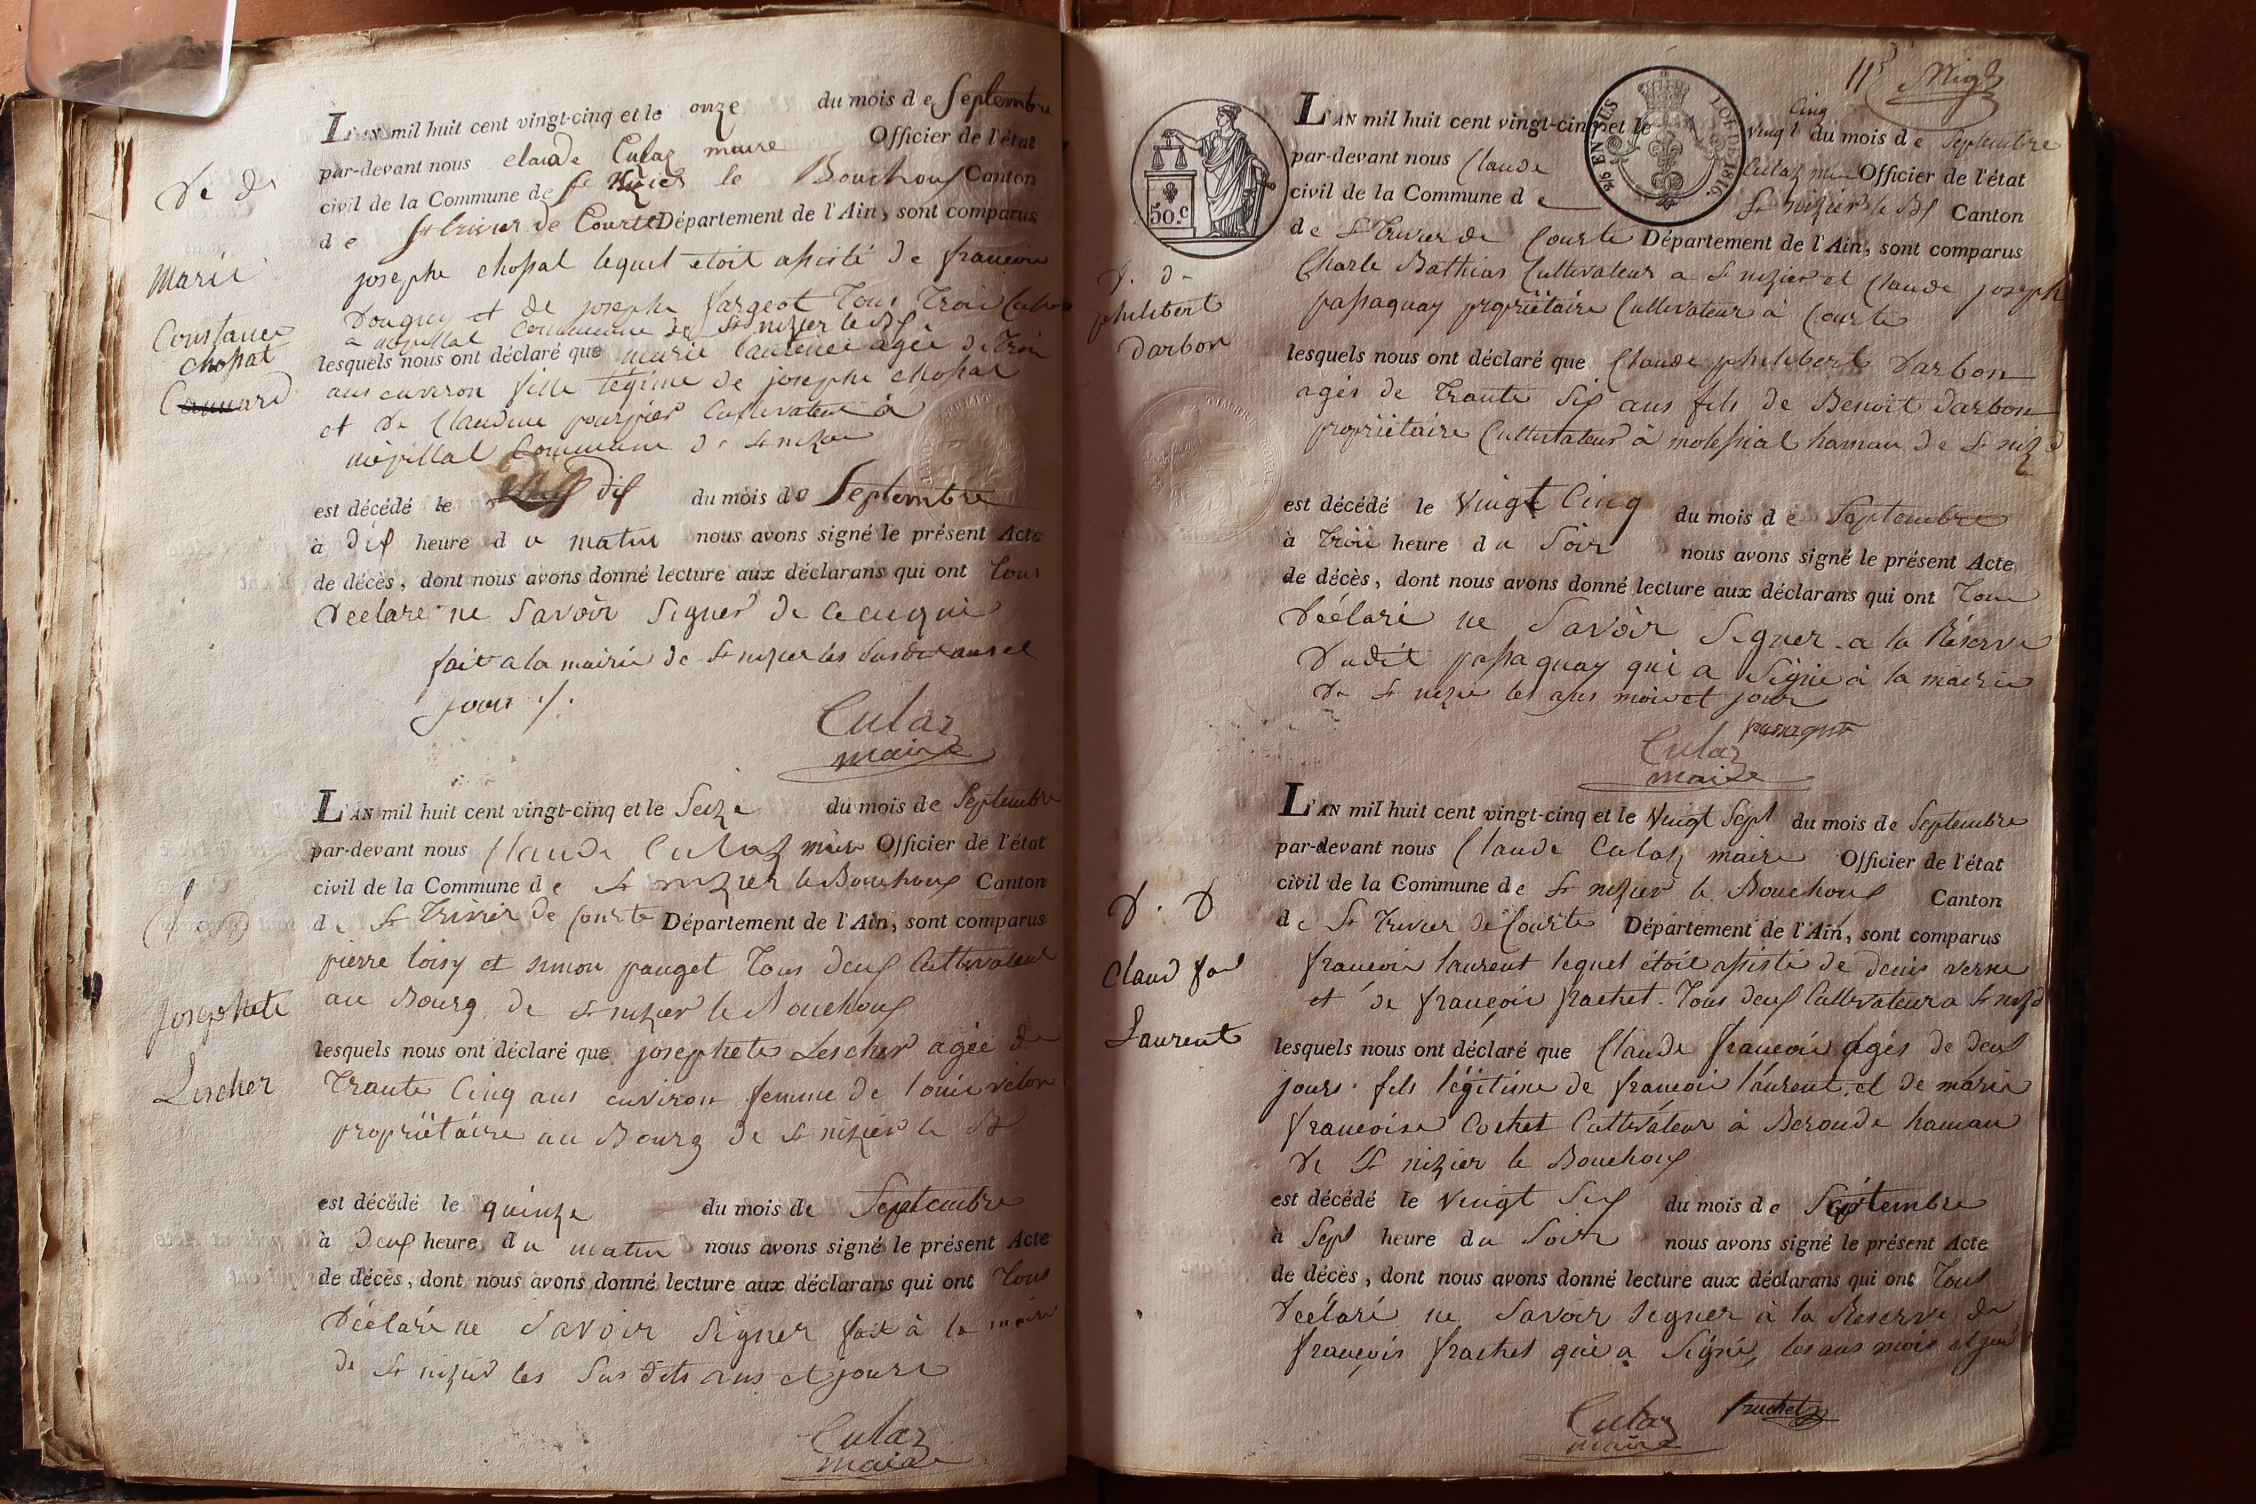 L'AN mil huit cent vingt-cinq et le onze du mois de Septembre
par-devant nous claude Culaz maire Officier de l'état
civil de la Commune de St Nizier le Bouchoux Canton
de St trivier de Courte Département de l'Ain, sont comparus
josephe chossat lequel etoit assisté de francoi
et de josephe fargeot tous trois
commune de St nizier le
lesquels nous ont déclaré que marie agée de troi
ans environ fille légime de josephe chossat
et de Claudine cultivateur à
Commune de St nizier
est décédé le dix du mois de Septembre
à dix heure du matin nous avons signé le présent Acte
de décès, dont nous avons donné lecture aux déclarans qui ont tous
Déclaré ne Savoir Signer de ce
fait a la mairie de St nizier les susdit ans et
jours
Culaz
maire
D. D
Marie
Constance
chossat
L'AN mil huit cent vingt-cinq et le Seize du mois de Septembre
par-devant nous Claude Culaz maire Officier de l'état
civil de la Commune de St nizier le Bouchoux Canton
de St Trivier de Courte Département de l'Ain, sont comparus
pierre loisy et simon pauget tous deux Cultivateur
au Bourg de St nizier le Bouchoux
lesquels nous ont déclaré que josephete Lescher agée de
Trante Cinq ans environ femme de louis
propriétaire au Bourg de St nizier le B
est décédé le quinze du mois de Septembre
à deux heure du matin nous avons signé le présent Acte
de décès, dont nous avons donné lecture aux déclarans qui ont tous
Déclaré ne Savoir Signer fait à la mairie
de St nizier les Sus dits ans et jours
Culaz
maire
Josephete
Lescher
50.c
EN SUS
LOI DE 1816
L'AN mil huit cent vingt-cinq et le vingt Cinq du mois de Septembre
par-devant nous Claude Culaz Officier de l'état
civil de la Commune de St nizier le Canton
de St Trivier de Courte Département de l'Ain, sont comparus
Charle Bathias Cultivateur a St nizier et Claude joseph
passaquay propriétaire Cultivateur à Courte
lesquels nous ont déclaré que Claude philibert Darbon
agés de Trante Six ans fils de Benoit Darbon
propriétaire Cultivateur à hamau de St
est décédé le vingt Cinq du mois de Septembre
à Troi heure du Soir nous avons signé le présent Acte
de décès, dont nous avons donné lecture aux déclarans qui ont
Déclaré ne Savoir Signer a la Réserve
Dudit passaquay qui a Signé à la mairie
de St les ans mois et jour
Culaz
maire
D. D
philibert
Darbon
L'AN mil huit cent vingt-cinq et le vingt Sept du mois de Septembre
par-devant nous Claude Culaz maire Officier de l'état
civil de la Commune de St nizier le Bouchoux Canton
de St Trivier de Courte Département de l'Ain, sont comparus
francoi laurent lequel étoit assisté de denis verne
et de françois frachet Tous deux Cultivateur a St
lesquels nous ont déclaré que Claude francoi agés de deux
jours fils légitime de francoi laurent et de marie
francoise Cochet Cultivateur à Beronde hamau
de St nizier le Bouchoux
est décédé le vingt Six du mois de Septembre
à Sept heure du Soir nous avons signé le présent Acte
de décès, dont nous avons donné lecture aux déclarans qui ont tous
Déclaré ne Savoir Signer à la Reserve de
françois frachet qui a Signé, les ans mois et jour
Culaz
maire
D. D
Laurent